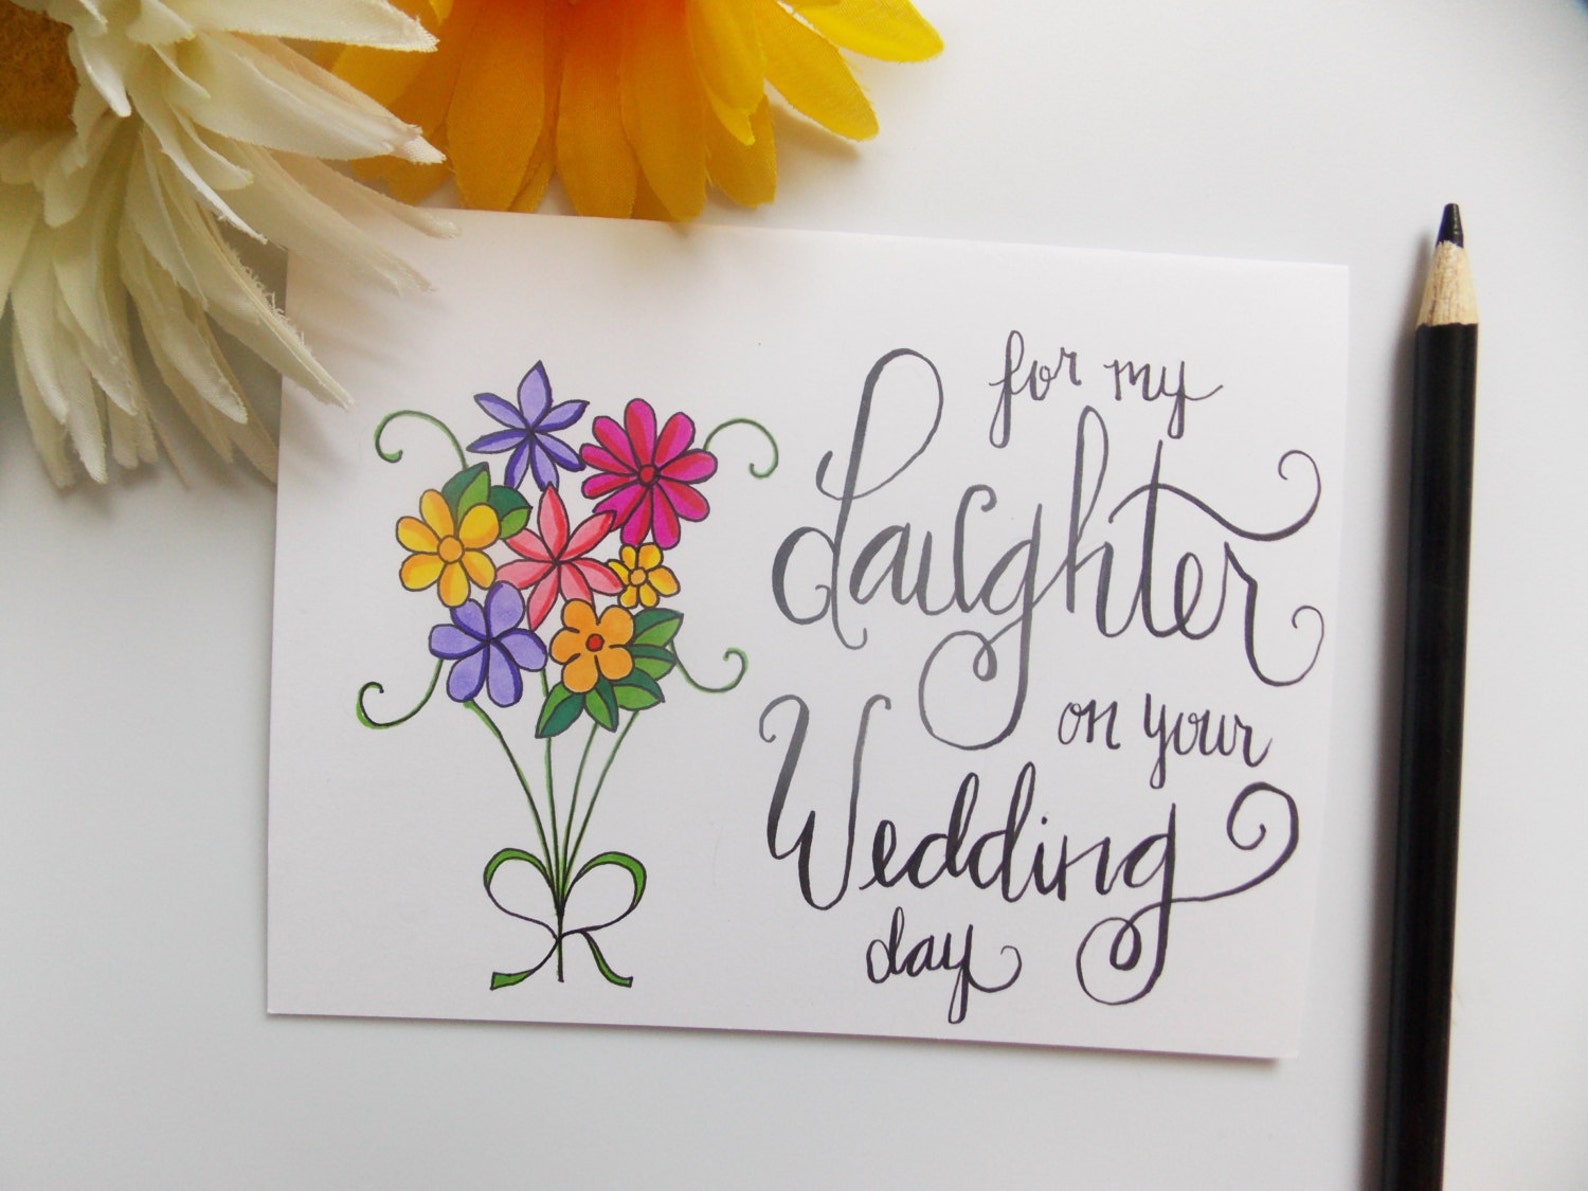 for my
daughter
on your
Wedding
day